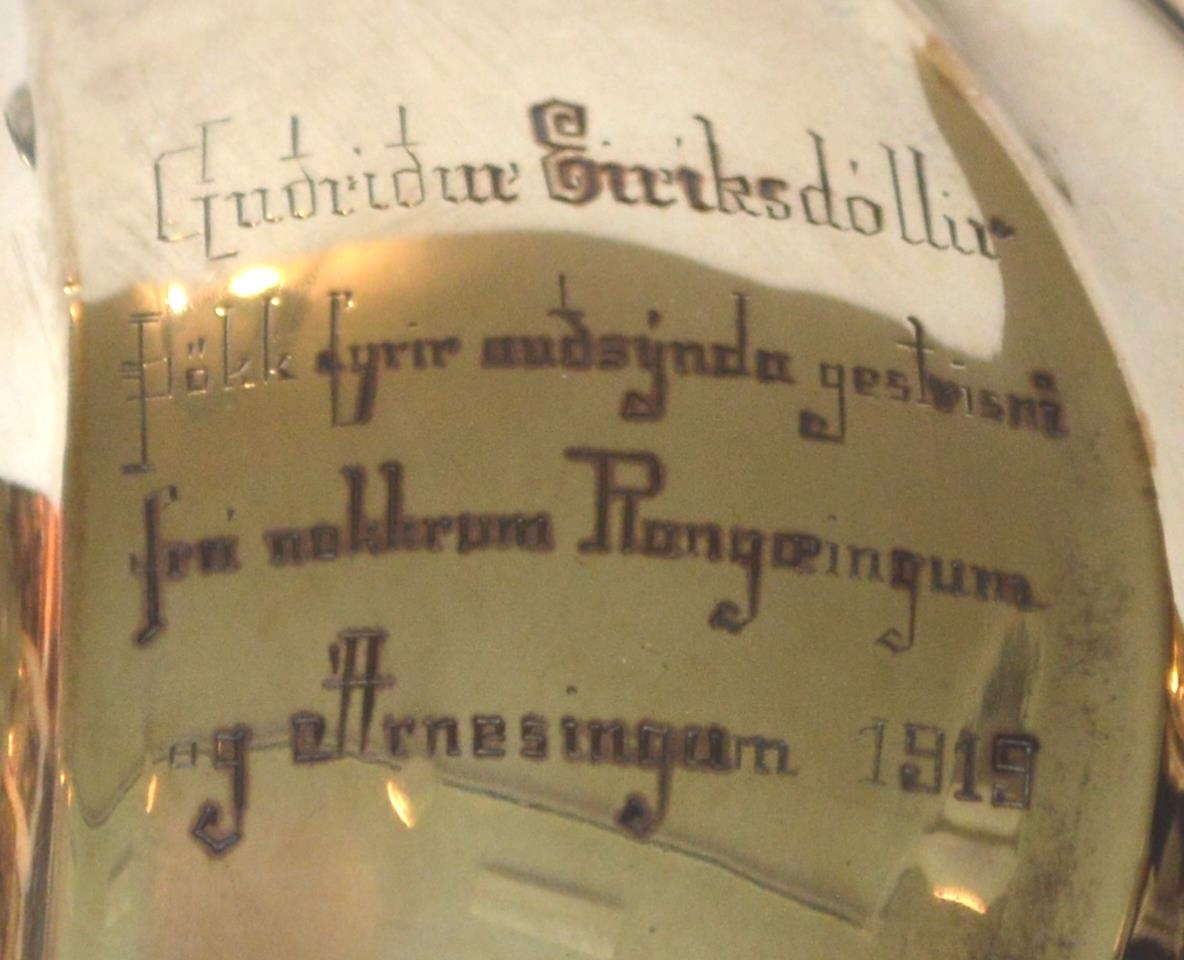 Guðríður Eiríksdóttir
Þökk fyrir auðsýnda gestrisni
frá nokkrum Rangæingum
og Árnesingum 1919